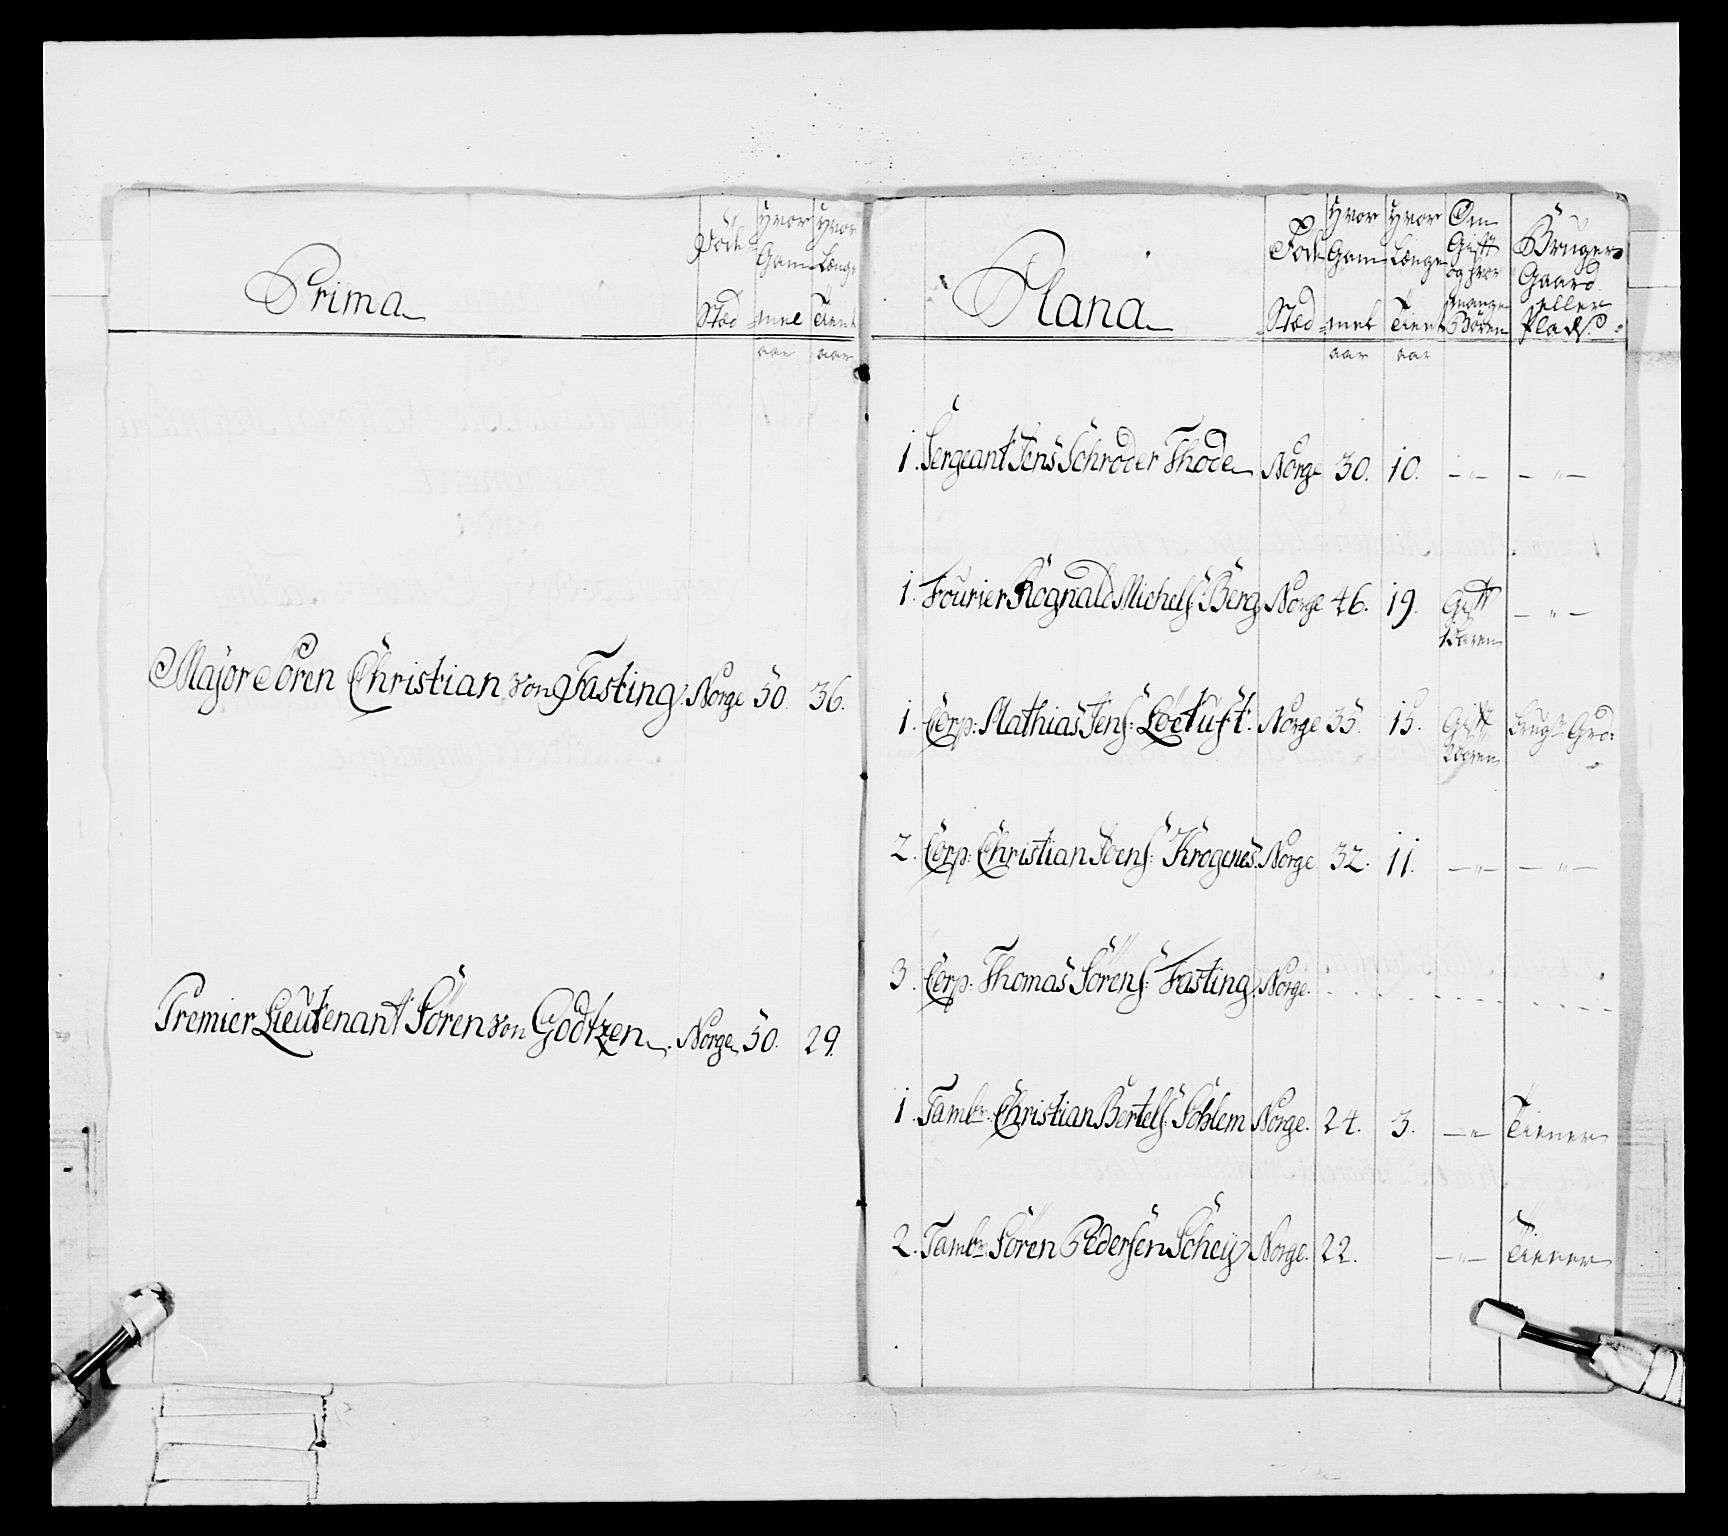 Prima
Föde Stæd
Hvor Gammel
Hvor Længe Tient
aar aar
Major Sören Christian von Fasting. Norge 50. 36.
Premier Lieutenant Sören von Godtzen. Norge 50. 29.
Plana
Föde Stæd
Hvor Gammel
Hvor Længe Tient
Om Gift og hvor mange Bören
Bruger Gaard eller Plads
aar aar
1. Sergeant Jens Schröder Thode Norge 30. 10. — " — — " —
1. Fourier Rognald Michels: Berg Norge 46. 19. Gift — " —
1 Baren
1. Corp: Mathias Jens: Norge 35. 15. Gift
2 Bören
2. Corp: Christian Joens: Krogenes Norge 32. 11. — " — — " —
3. Corp: Thomas Sörens: Fasting. Norge.
1. Tambr: Christian Bertels: Sohlem Norge. 24. 3. — " Tiener
2. Tambr: Sören Pedersen Schey Norge. 22. — " — Tiener